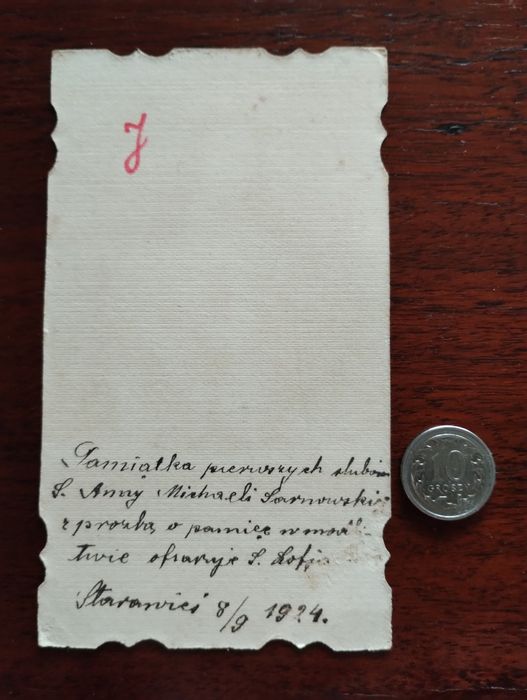 J
Pamiątka pierwszych ślubów
S. Anny Michaeli Sarnowskiej
z prozbą o pamięć w mod-
twie ofiaruje S. Zofja
Starawieś 8/9 1924.
10
GROSZY